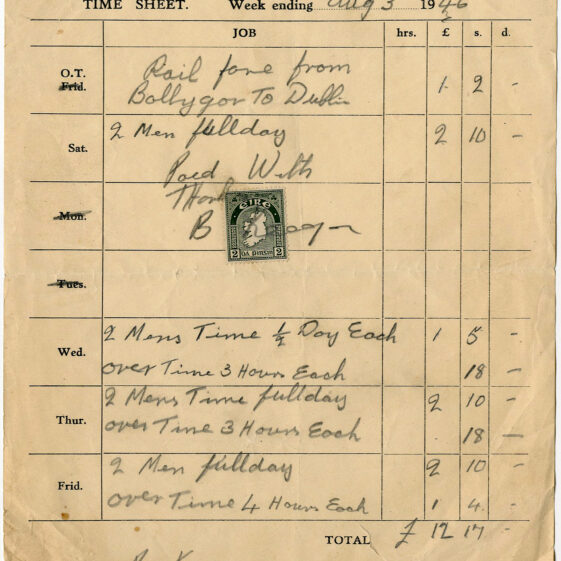 TIME SHEET. Week ending Aug 3 1946
JOB hrs. £ s. d.
O.T. Rail fare from
Frid. Ballygar To Dublin 1 2 -
Sat. 2 Men fullday 2 10 -
Paid With
Thanks
Mon. B
EIRE
2 2
Tues.
2 Mens Time ½ Day Each 1 5 -
Wed. over Time 3 Hours Each 18 -
2 Mens Time fullday 2 10 -
Thur. over Time 3 Hours Each 18 -
2 Men fullday 2 10 -
Frid. over Time 4 Hours Each 1 4 -
TOTAL £ 12 17 -